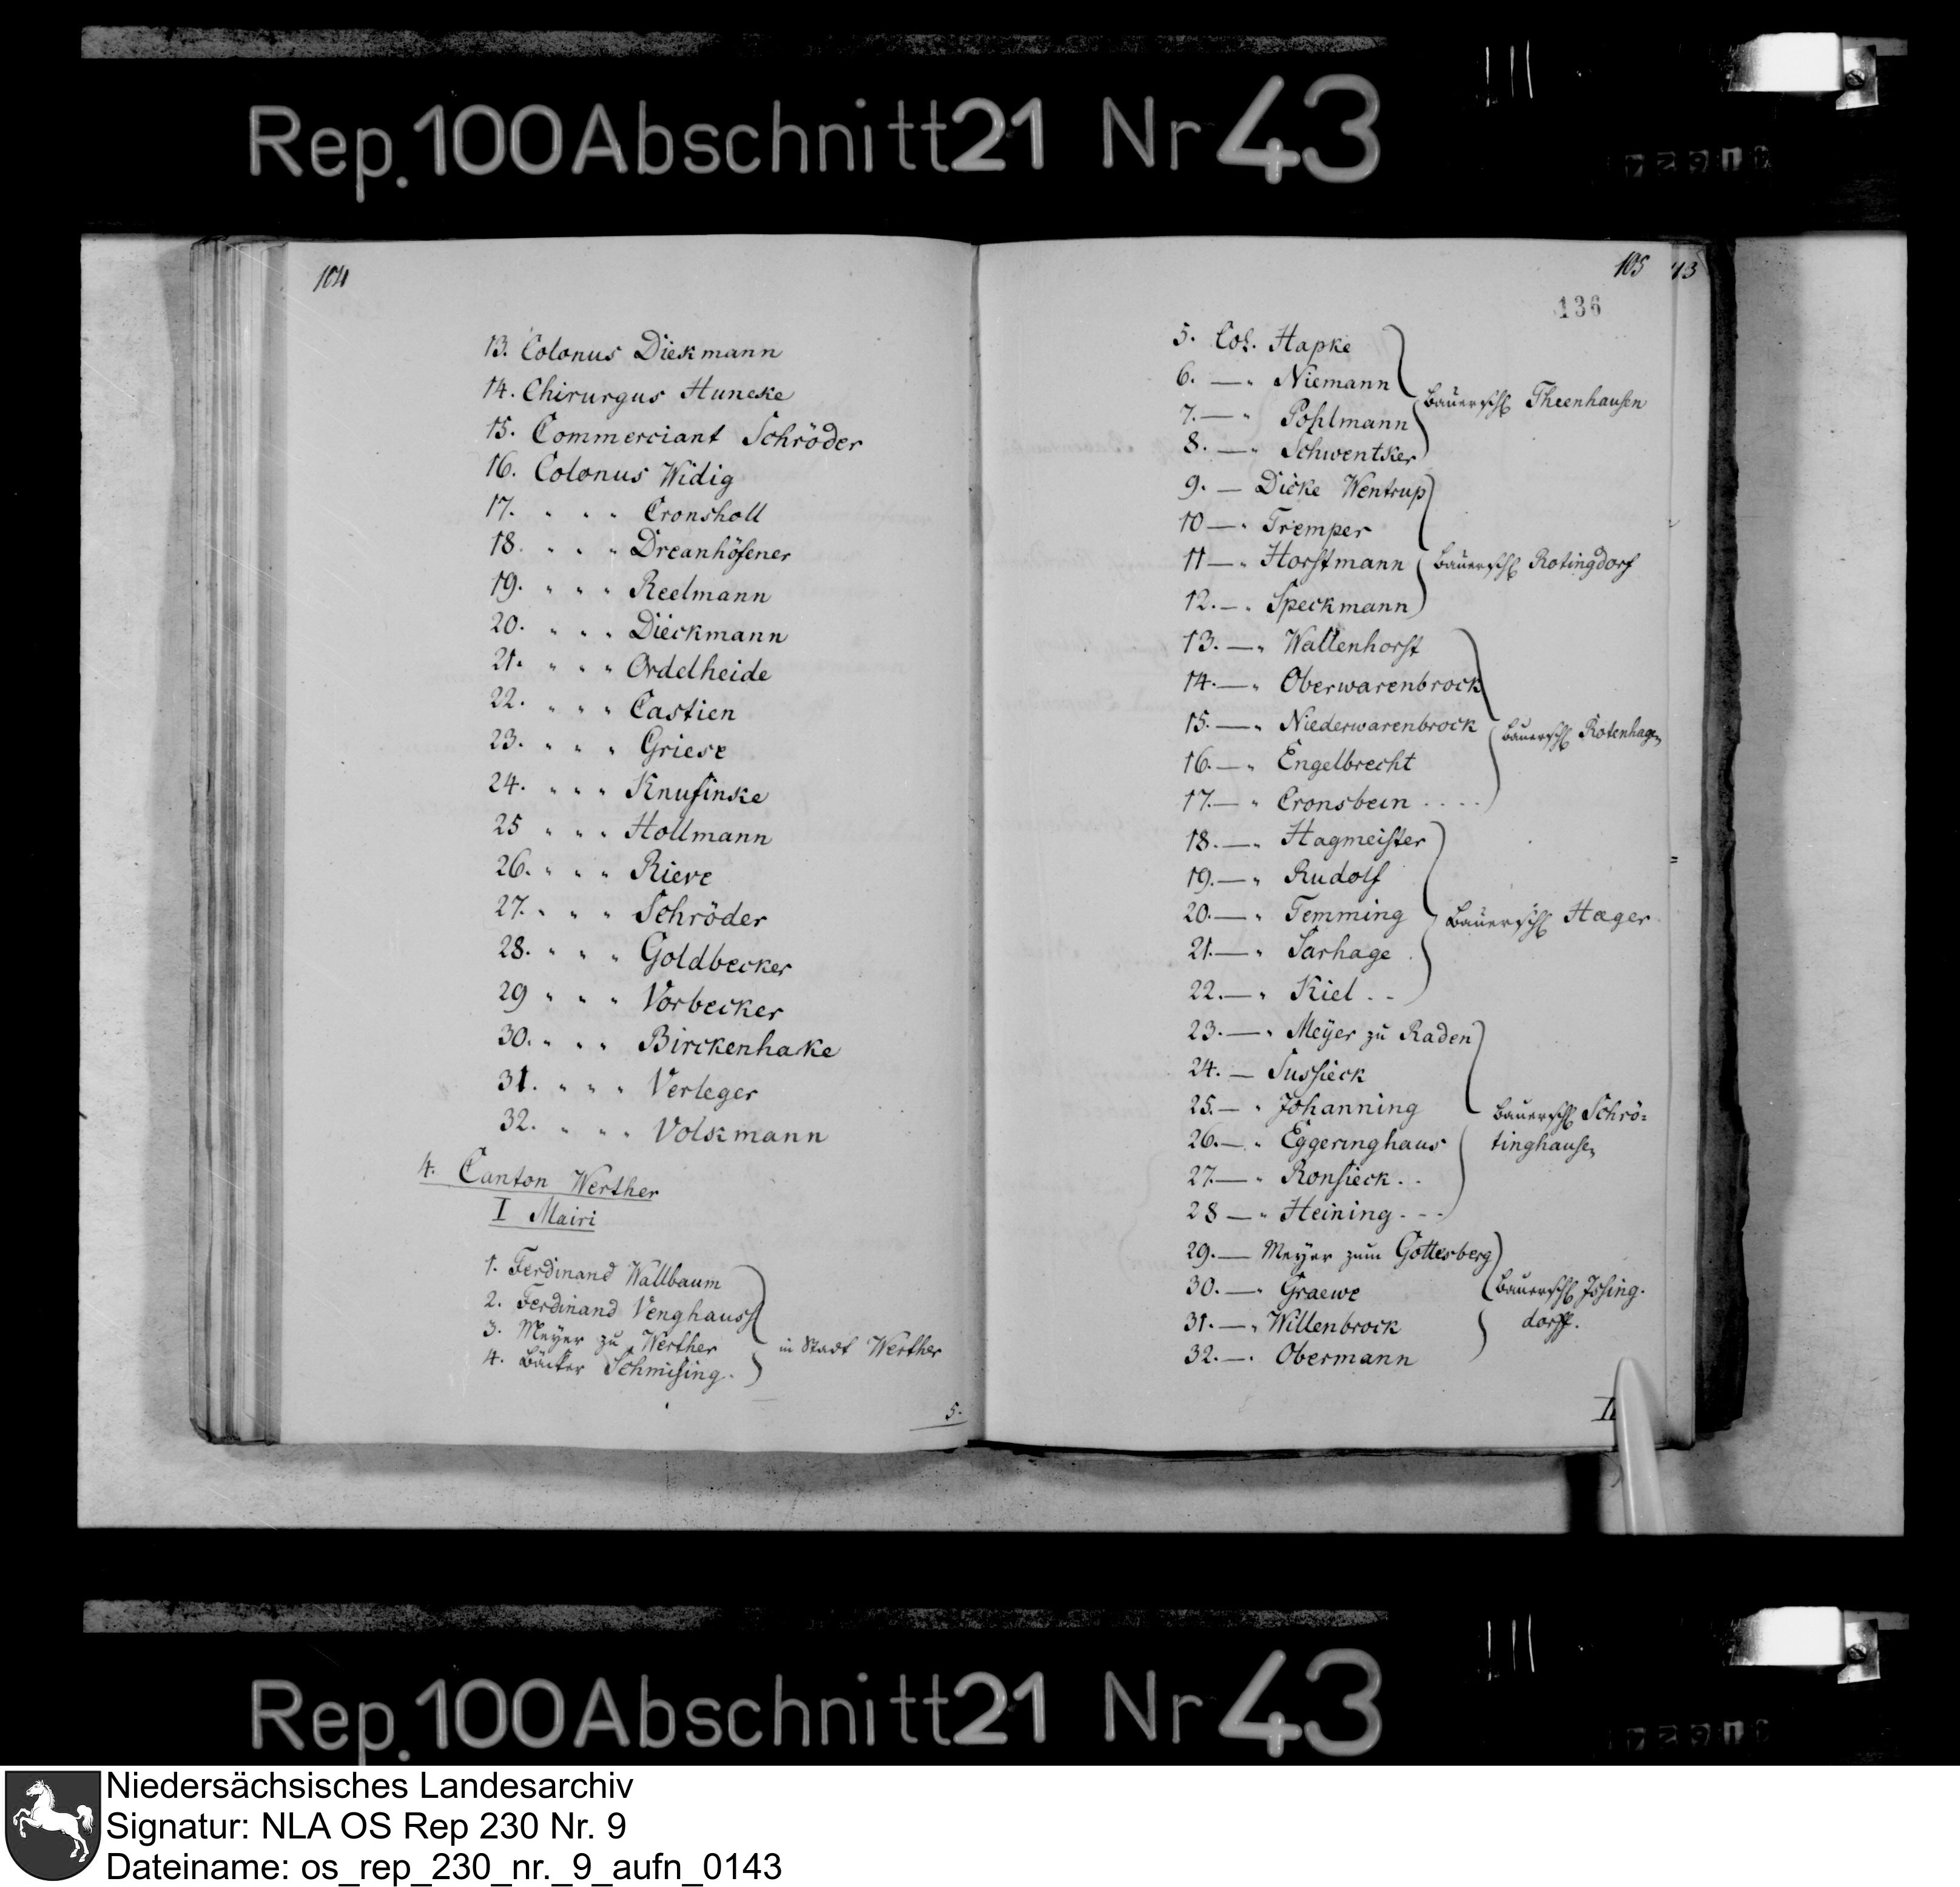 Rep. 100 Abschnitt 21 Nr 43
104
13. Colonus Diekmann
14. Chirurgus Huneke
15. Commerciant Schröder
16. Colonus Widig
17. " " " Cronsholl
18. " " " Dreanhöfener
19. " " " Reelmann
20. " " " Dieckmann
21. " " " Ordelheide
22. " " " Castien
23. " " " Griese
24. " " " Knufinke
25 " " " Hollmann
26. " " " Riere
27. " " " Schröder
28. " " " Goldbecker
29 " " " Vorbecker
30. " " " Birckenhake
31. " " " Verleger
32. " " " Volkmann
4. Canton Werther
I Mairi
1. Ferdinand Wallbaum
2. Ferdinand Venghauss
3. Meyer zu Werther
4. Bäcker Schmising.
in Stadt Werther
5.
105
136
5. Col. Hapke
6. — " Niemann
7. — " Pohlmann
8. — " Schwentker
Bauersch. Theenhausen
9. — Dicke Wentrup
10 — " Tremper
11 — " Horstmann
12. — " Speckmann
Bauersch. Rotingdorf
13. — " Wallenhorst
14. — " Oberwarenbrock
15. — " Niederwarenbrock
16. — " Engelbrecht
17. — " Cronsbein ....
Bauersch. Rotenhagen
18. — " Hagmeister
19. — " Rudolf
20. — " Temming
21. — " Sarhage
22. — " Kiel . .
Bauersch. Hæger
23. — " Meÿer zu Raden
24. — Sussieck
25. — " Johanning
26. — " Eggeringhaus
27. — " Ronsieck . .
28 — " Heining - - -
Bauersch. Schrö-
tinghausen
29. — Meyer zum Gottesberg
30. — " Graewe
31. — " Willenbrock
32. — " Obermann
Bauersch. Ißing-
dorff.
Rep. 100 Abschnitt 21 Nr 43
Niedersächsisches Landesarchiv
Signatur: NLA OS Rep 230 Nr. 9
Dateiname: os_rep_230_nr._9_aufn_0143